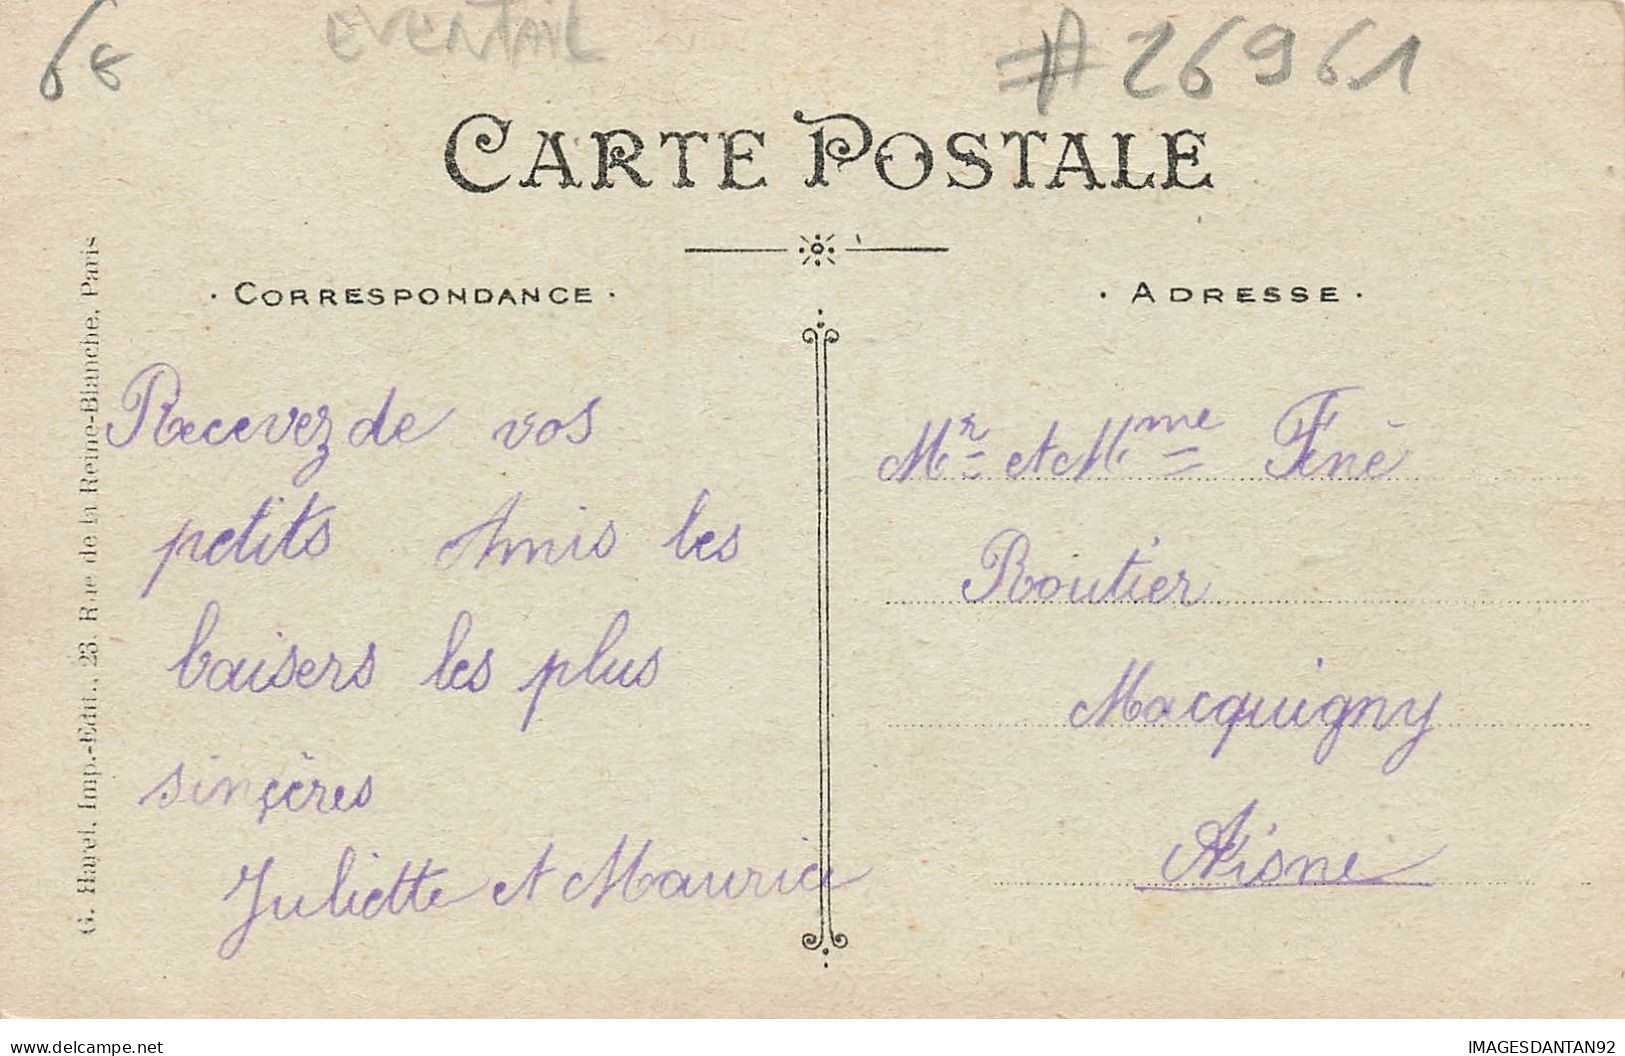 6€
EVENTAIL
#26961
CARTE POSTALE
· CORRESPONDANCE ·
· ADRESSE ·
Recevez de vos
petits Amis les
baisers les plus
sincères
Juliette et Maurice
Mr et Mme Fené
Routier
Macquigny
Aisne
G. Harel, Imp.-Edit., 23, Rue de la Reine-Blanche, Paris
delcampe.net
IMAGESDANTAN92